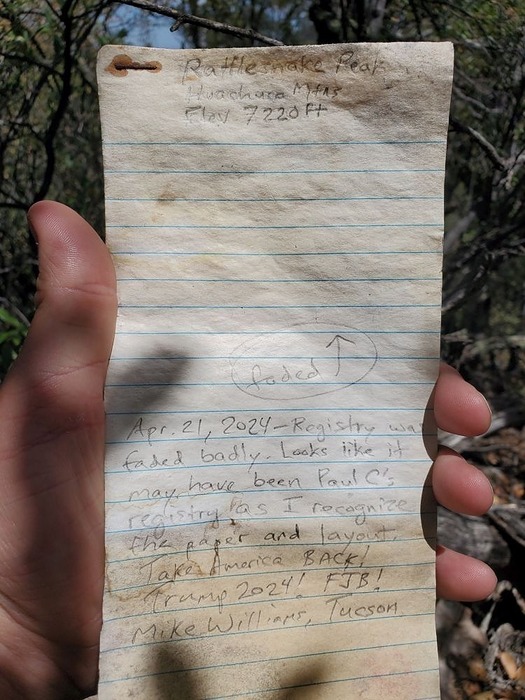 Rattlesnake Peak
Huachuca Mtns
Elev 7220 ft
faded ↑
Apr. 21, 2024-Registry was
faded badly. Looks like it
may have been Paul C's
registry as I recognize
the paper and layout.
Take America BACK!
Trump 2024! FJB!
Mike Williams, Tucson